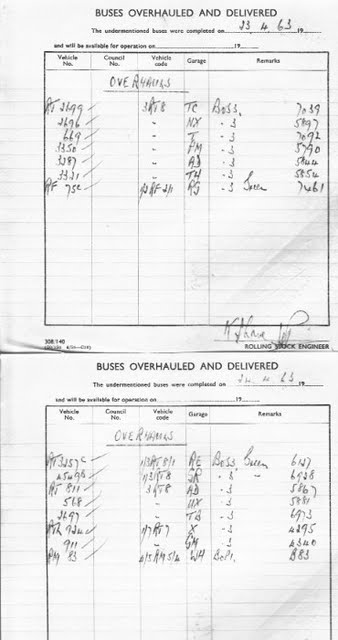 BUSES OVERHAULED AND DELIVERED
The undermentioned buses were completed on 23 4 63 19
and will be available for operation on 19
Vehicle No. Council No. Vehicle code Garage Remarks
OVERHAULS
RT 2699 3RT8 TC BOSS. 7039
2696 " UX - 3 5897
669 " T - 3 7092
3350 " PM - 3 5790
3287 " AD - 3 5844
3321 " TH - 3 5854
RF 75c 1/2RF 2/1 RG - 3 Green 7461
308/140
ROLLING STOCK ENGINEER
BUSES OVERHAULED AND DELIVERED
The undermentioned buses were completed on 24 4 63 19
and will be available for operation on 19
Vehicle No. Council No. Vehicle code Garage Remarks
OVERHAULS
RT 3257c 1/3RT8/1 RE BOSS Green 6127
4549c 1/3RT8 GR - 3 " 6928
RT 811 3RT8 AD - 3 5867
568 " UX - 3 5881
2697 " TB - 3 6973
RTL 924 1/7RT7 X - 3 4295
911 " GM - 3 4340
RM 83 4/5RM5/4 WH 883